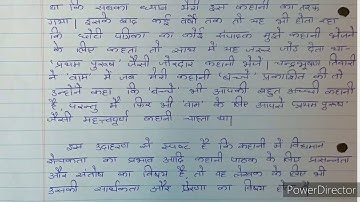 था कि सबका ध्यान मेरी इस कहानी की तरफ
गया। इसके बाद कई वर्षों तक तो यह भी होता रहा
कि छोटी पत्रिका का कोई संपादक मुझे कहानी भेजने
के लिए कहता तो साथ में यह जरूर जोड़ देता था-
'प्रथम पुरुष' जैसी जोरदार कहानी भेजें। चन्द्रभूषण तिवारी
ने 'वाम' में जब मेरी कहानी 'बच्चे' प्रकाशित की तो
उन्होंने कहा कि 'बच्चे' भी आपकी बहुत अच्छी कहानी
है परन्तु मैं फिर भी 'वाम' के लिए आपसे 'प्रथम पुरुष'
जैसी महत्वपूर्ण कहानी चाहता था।
इस उदाहरण से स्पष्ट है कि कहानी में विद्यमान
रोचकता का प्रभाव आदि कहानी पाठक के लिए प्रसन्नता
और संतोष का विषय है तो वह लेखक के लिए भी
उसकी सार्थकता और प्रेरणा का विषय
PowerDirector